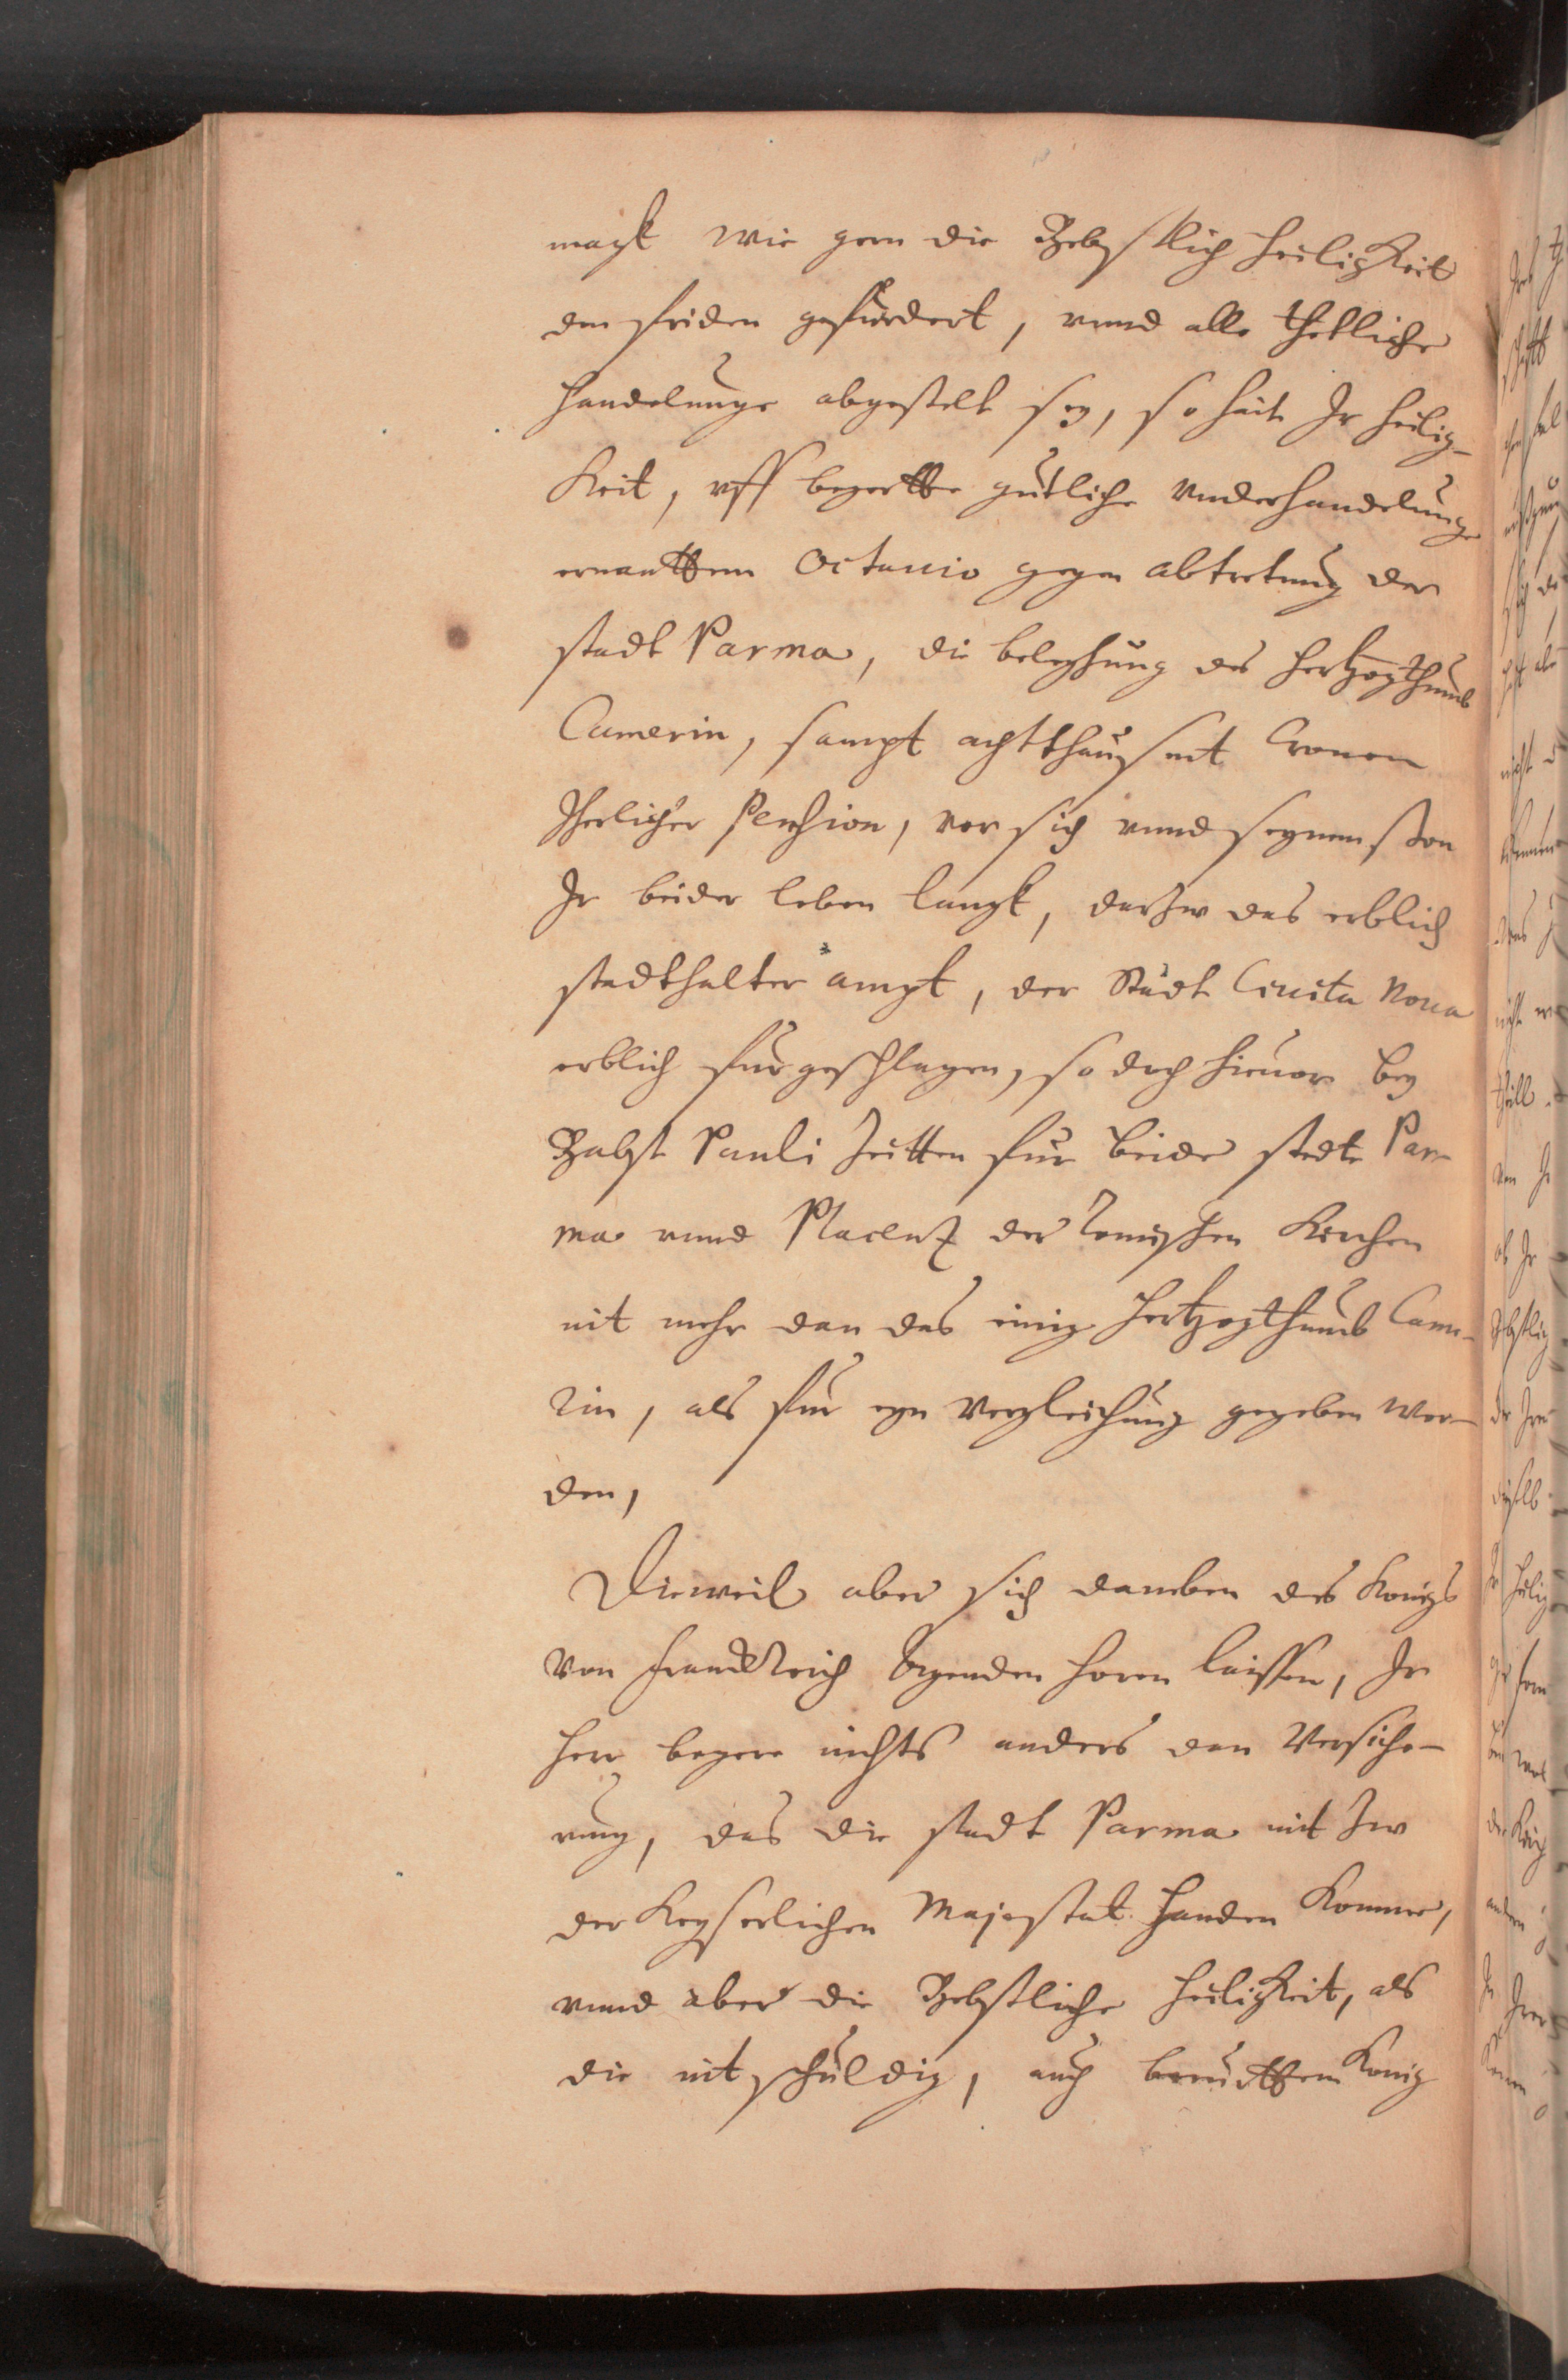 mayst wie gern die Bebstlich heiligkeit
den friden gefurdert, unnd alle thetliche
handelunge abgestelt sey, so hait Ir heilig-
keit, uff begertte gutliche underhandelunge
ernanttem Octauio gegen abtretung der
stadt Parma, die belehnung des Hertzogthumb
Camerin, sampt achtthausent Cronen
Iherlicher Penshion, vor sich unnd seynem son
Ir beider leben langk, darzw das erblich
stadthalter ampt, der Stadt Ciuita Noua
erblich furgeschlagen, so doch hieuor bey
Babst Pauli Zeitten fur beide stedte Par-
ma unnd Placentz der Romischen Kirchen
nit mehr dan das einig Hertzogthumb Came-
rin, als fur eyn vergleichung gegeben wor-
den,
Dieweil aber sich daneben des Konigs
von Franckreich Agenden horen laissen, Ir
Herr begere nichts anders dan versiche-
rung, das die stadt Parma nit Zw
der Keyserlichen Majestat handen komme,
unnd aber die Bebstliche heiligkeit, als
die nit schuldig, auch berurttem Konig